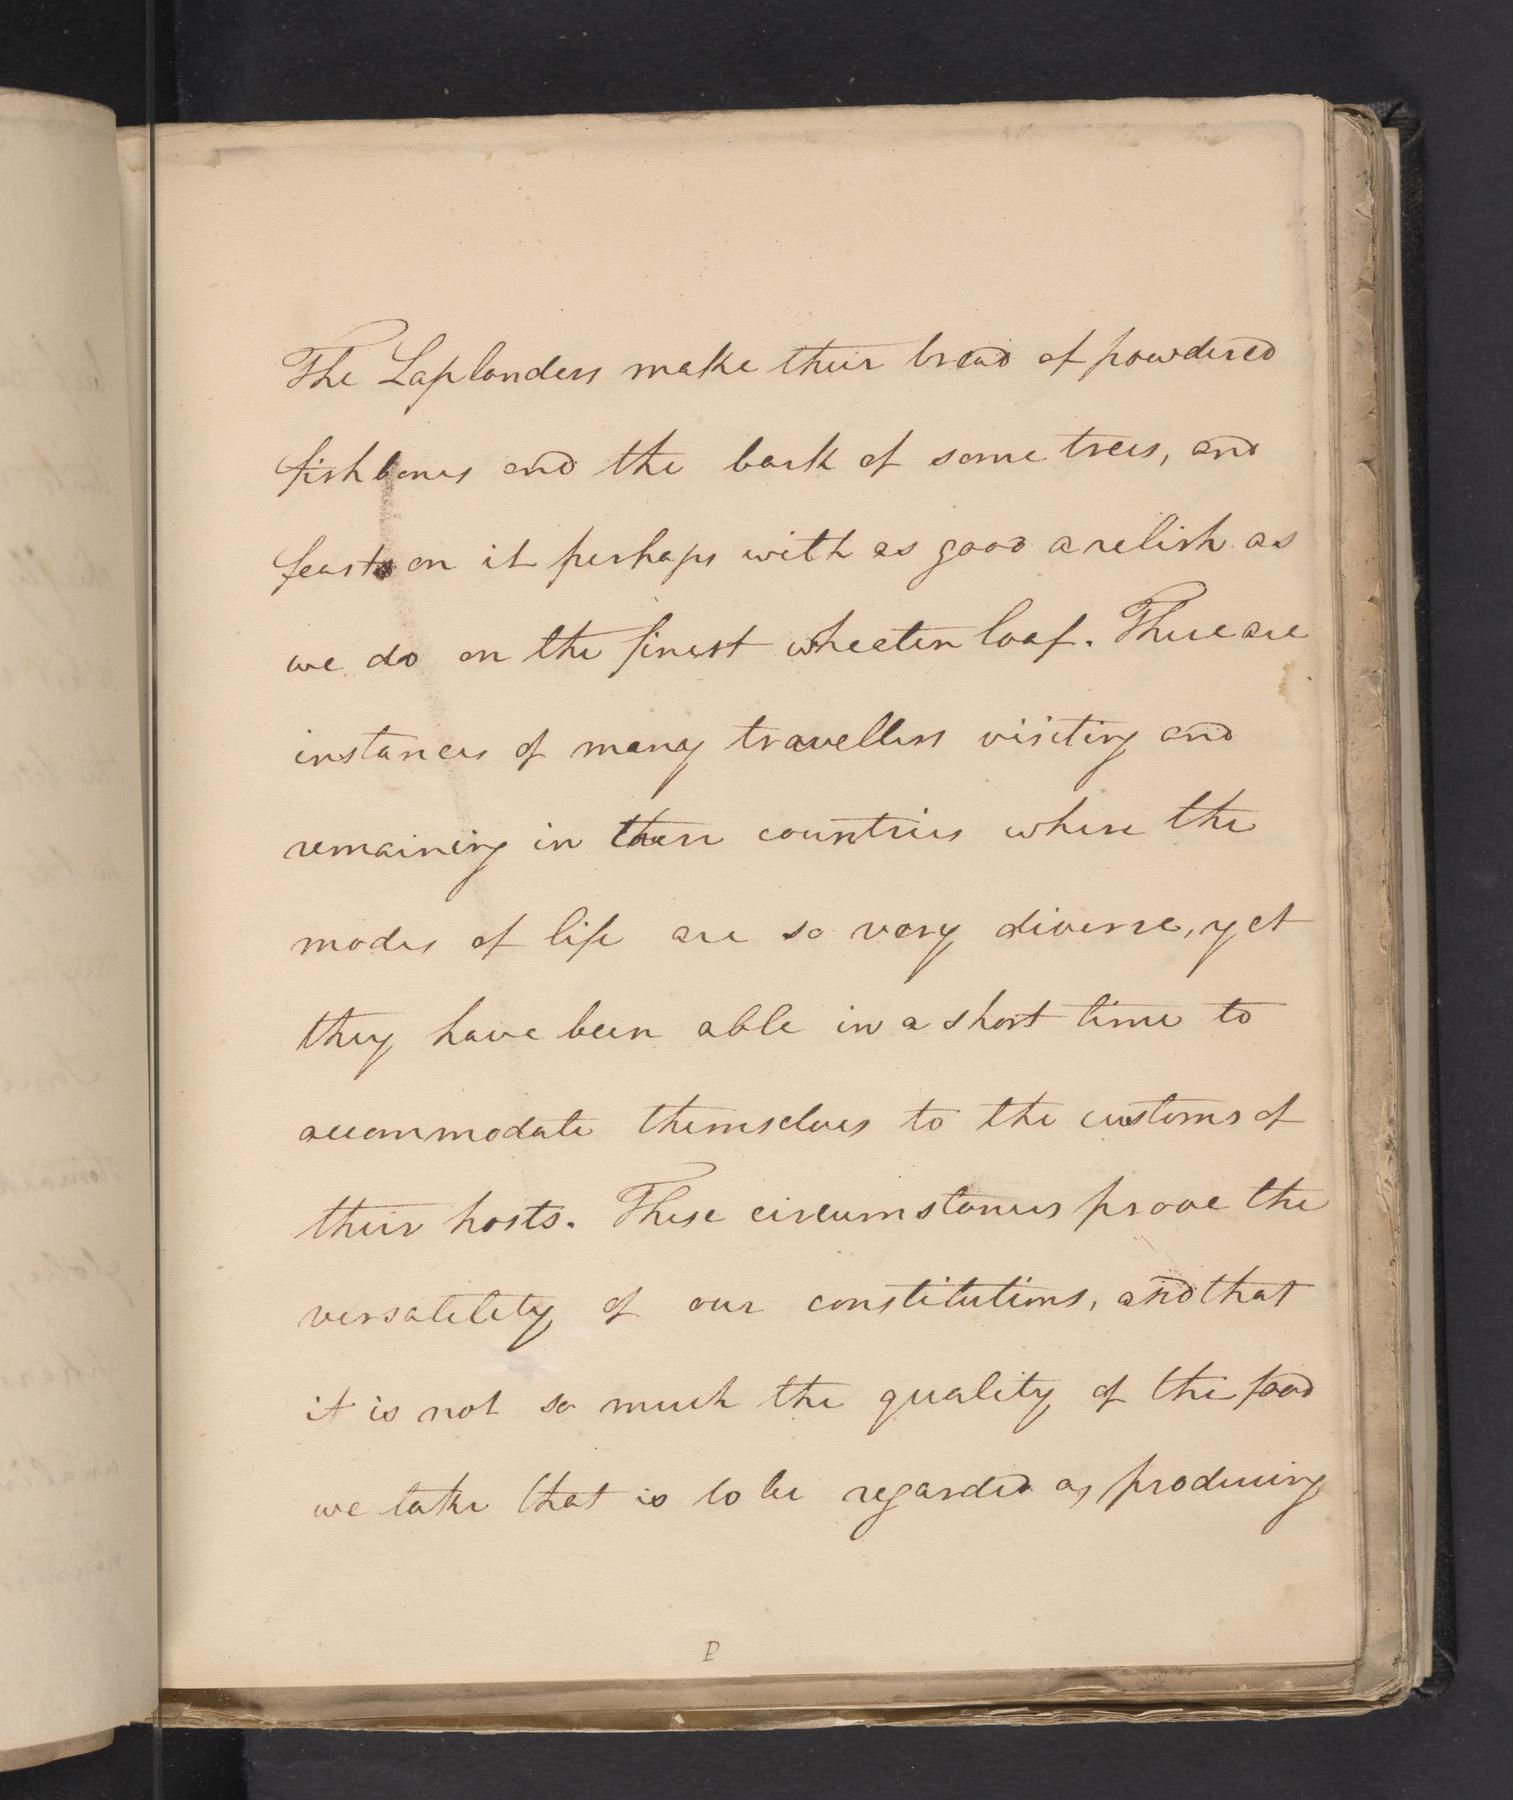 The Laplanders make their bread of powdered
fishbones and the bark of some trees, and
feast on it perhaps with as good a relish as
we do on the finest wheaten loaf. There are
instances of many travellers visiting and
remaining in these countries where the
modes of life are so very diverse, yet
they have been able in a short time to
accommodate themselves to the customs of
their hosts. These circumstances prove the
versatility of our constitutions, and that
it is not so much the quality of the food
we take that is to be regarded as producing